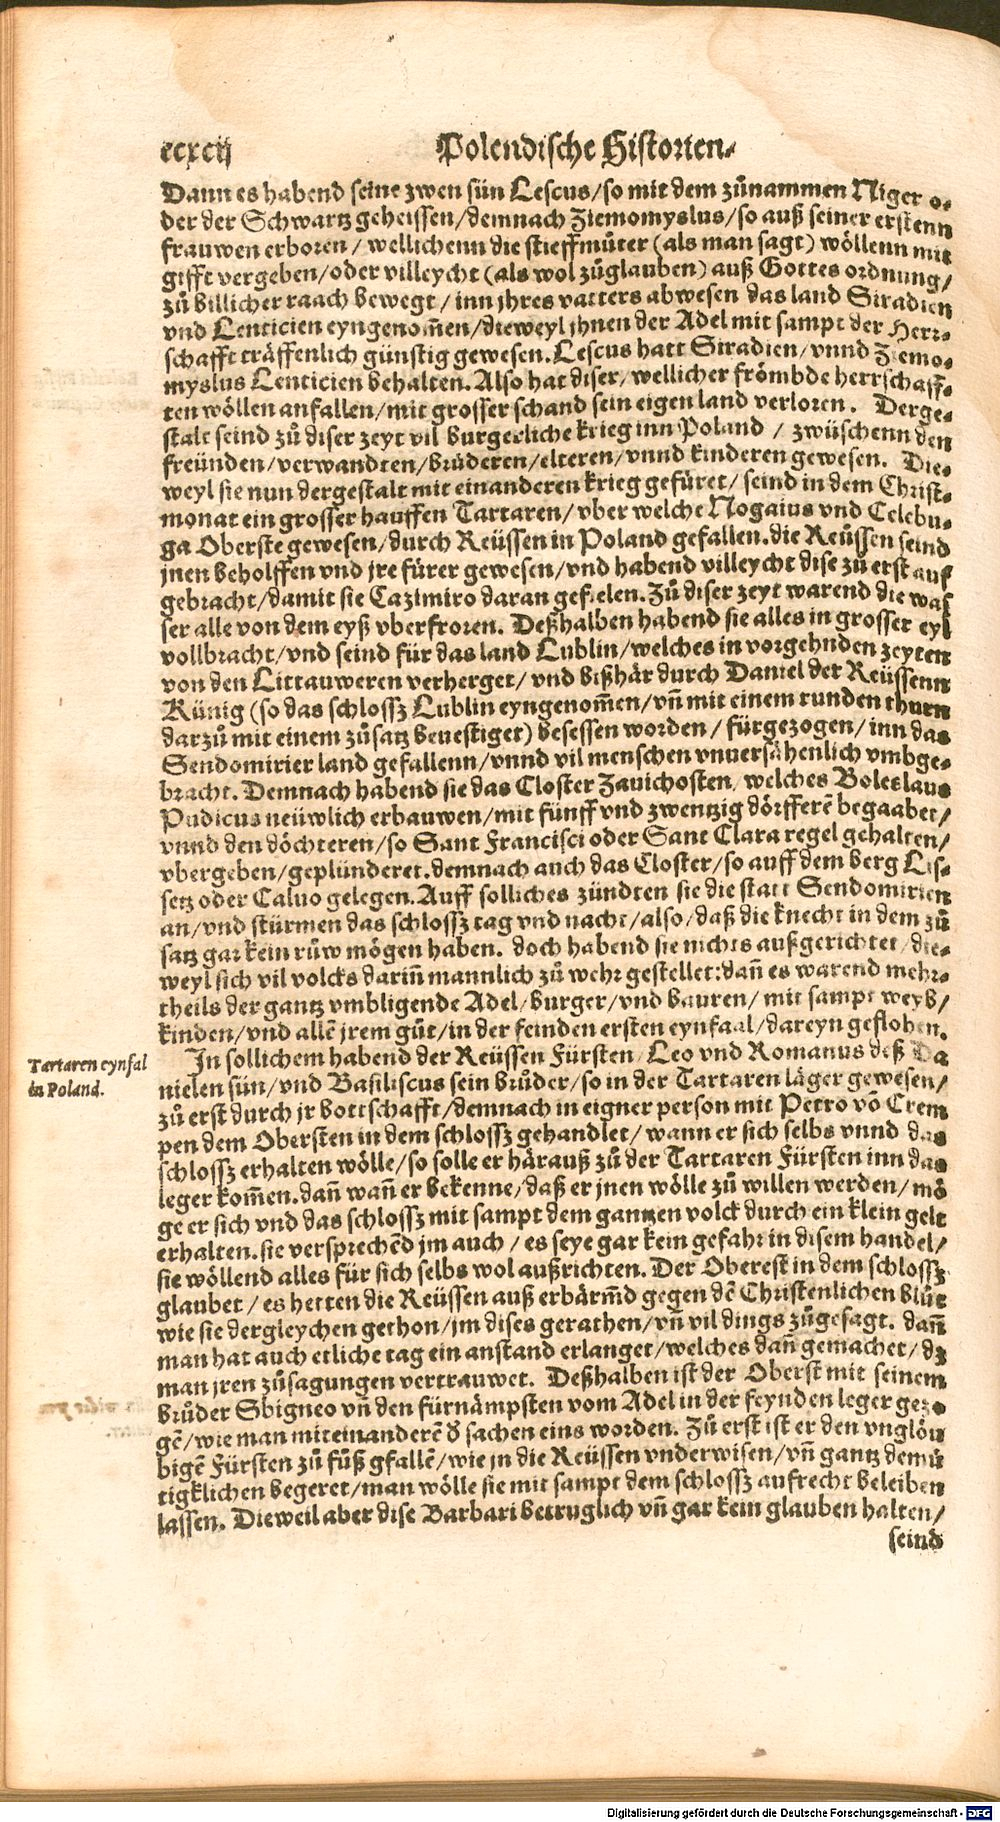 ccxcij Polendische Historien.
Dann es habend seine zwen sün Lescus/so mit dem zůnammen Niger o-
der der Schwartz geheissen/demnach Ziemomyslus/so auß seiner erstenn
frauwen erboren/ wellichenn die stieffmůter (als man sagt) wöllenn mit
gifft vergeben/oder villeycht (als wol zůglauben) auß Gottes ordnung/
zů billicher raach bewegt/ inn jhres vatters abwesen das land Siradien
vnd Lenticien eyngenom̃en/dieweyl jhnen der Adel mit sampt der Herr-
schafft träffenlich günstig gewesen. Lescus hatt Siradien/vnnd Ziemo-
myslus Lenticien behalten. Also hat diser/wellicher frömbde herrschaff-
ten wöllen anfallen/mit grosser schand sein eigen land verloren. Derge-
stalt seind zů diser zeyt vil burgerliche krieg inn Poland / zwüschenn den
freünden/verwandten/brůderen/elteren/vnnd kinderen gewesen. Die-
weyl sie nun dergestalt mit einanderen krieg gefüret/ seind in dem Christ-
monat ein grosser hauffen Tartaren/vber welche Nogaius vnd Celebu-
ga Oberste gewesen/durch Reüssen in Poland gefallen. die Reüssen seind
jnen beholffen vnd jre fürer gewesen/vnd habend villeycht dise zů erst auf
gebracht/damit sie Cazimiro daran gefielen. Zů diser zeyt warend die was
ser alle von dem eyß vberfroren. Deßhalben habend sie alles in grosser eyl
vollbracht/vnd seind für das land Lublin/welches in vorgehnden zeyten
von den Littauweren verherget/ vnd bißhär durch Daniel der Reüssenn
Künig (so das schlossz Lublin eyngenom̃en/vñ mit einem runden thurn
darzů mit einem zůsatz beuestiget) besessen worden/ fürgezogen/inn das
Sendomirier land gefallenn/vnnd vil menschen vnuersähenlich vmbge-
bracht. Demnach habend sie das Closter Zauichosten/welches Boleslaus
Pudicus neüwlich erbauwen/mit fünff vnd zwentzig dörfferẽ begaabet/
vnnd den döchteren/so Sant Francisci oder Sant Clara regel gehalten/
vbergeben/geplünderet. demnach auch das Closter/so auff dem berg Lis-
setz oder Caluo gelegen. Auff solliches zündten sie die statt Sendomirien
an/vnd stürmen das schlossz tag vnd nacht/also/daß die knecht in dem zů
satz gar kein růw mögen haben. doch habend sie nichts außgerichtet/die-
weyl sich vil volcks dariñ mannlich zů wehr gestellet: dañ es warend mehr-
theils der gantz vmbligende Adel/burger/vnd bauren/ mit sampt weyb/
kinden/vnd allẽ jrem gůt/in der feinden ersten eynfaal/dareyn geflohen.
In sollichem habend der Reüssen Fürsten/Leo vnd Romanus deß Da
nielen sün/vnd Basiliscus sein brůder/so in der Tartaren läger gewesen/
zů erst durch jr bottschafft/demnach in eigner person mit Petro võ Crem
pen dem Obersten in dem schlossz gehandlet/ wann er sich selbs vnnd das
schlossz erhalten wölle/so solle er härauß zů der Tartaren Fürsten inn das
leger kom̃en. dañ wañ er bekenne/daß er jnen wölle zů willen werden/ mö
ge er sich vnd das schlossz mit sampt dem gantzen volck durch ein klein gelt
erhalten. sie versprechẽd jm auch / es seye gar kein gefahr in disem handel/
sie wöllend alles für sich selbs wol außrichten. Der Oberest in dem schlossz
glaubet / es hetten die Reüssen auß erbärm̃d gegen dẽ Christenlichen blůt
wie sie dergleychen gethon/jm dises gerathen/vñ vil dings zůgesagt. dañ
man hat auch etliche tag ein anstand erlanget/welches dañ gemachet/ dz
man jren zůsagungen vertrauwet. Deßhalben ist der Oberst mit seinem
brůder Sbigneo vñ den fürnämpsten vom Adel in der feynden leger gezo
gẽ/wie man miteinanderẽ d̕ sachen eins worden. Zů erst ist er den vnglöu
bigẽ Fürsten zů fůß gfallẽ/wie jn die Reüssen vnderwisen/vñ gantz demů
tigklichen begeret/man wölle sie mit sampt dem schlossz aufrecht beleiben
lassen. Dieweil aber dise Barbari betruglich vñ gar kein glauben halten/
seind
Tartaren eynfal
in Poland.
Digitalisierung gefördert durch die Deutsche Forschungsgemeinschaft - DFG